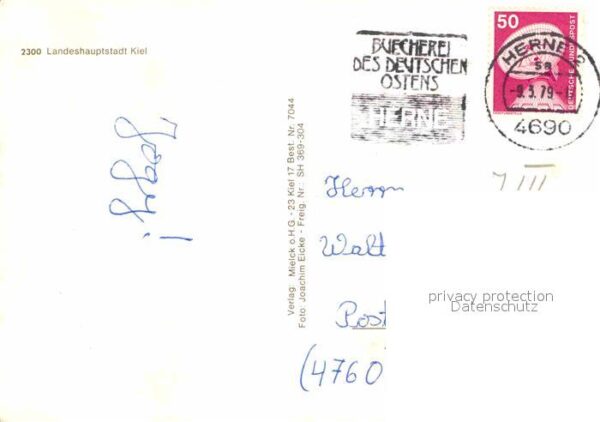 2300 Landeshauptstadt Kiel
BUECHEREI
DES DEUTSCHEN
OSTENS
HERNE
50
DEUTSCHE BUNDESPOST
HERNE 2
sa
-9.3.79-
4690
Verlag: Mielck o.H.G. - 23 Kiel 17 Best. Nr. 7044
Foto: Joachim Eicke - Freig. Nr.: SH 369-304
Herrn
Walt
Post
(4760
privacy protection
Datenschutz